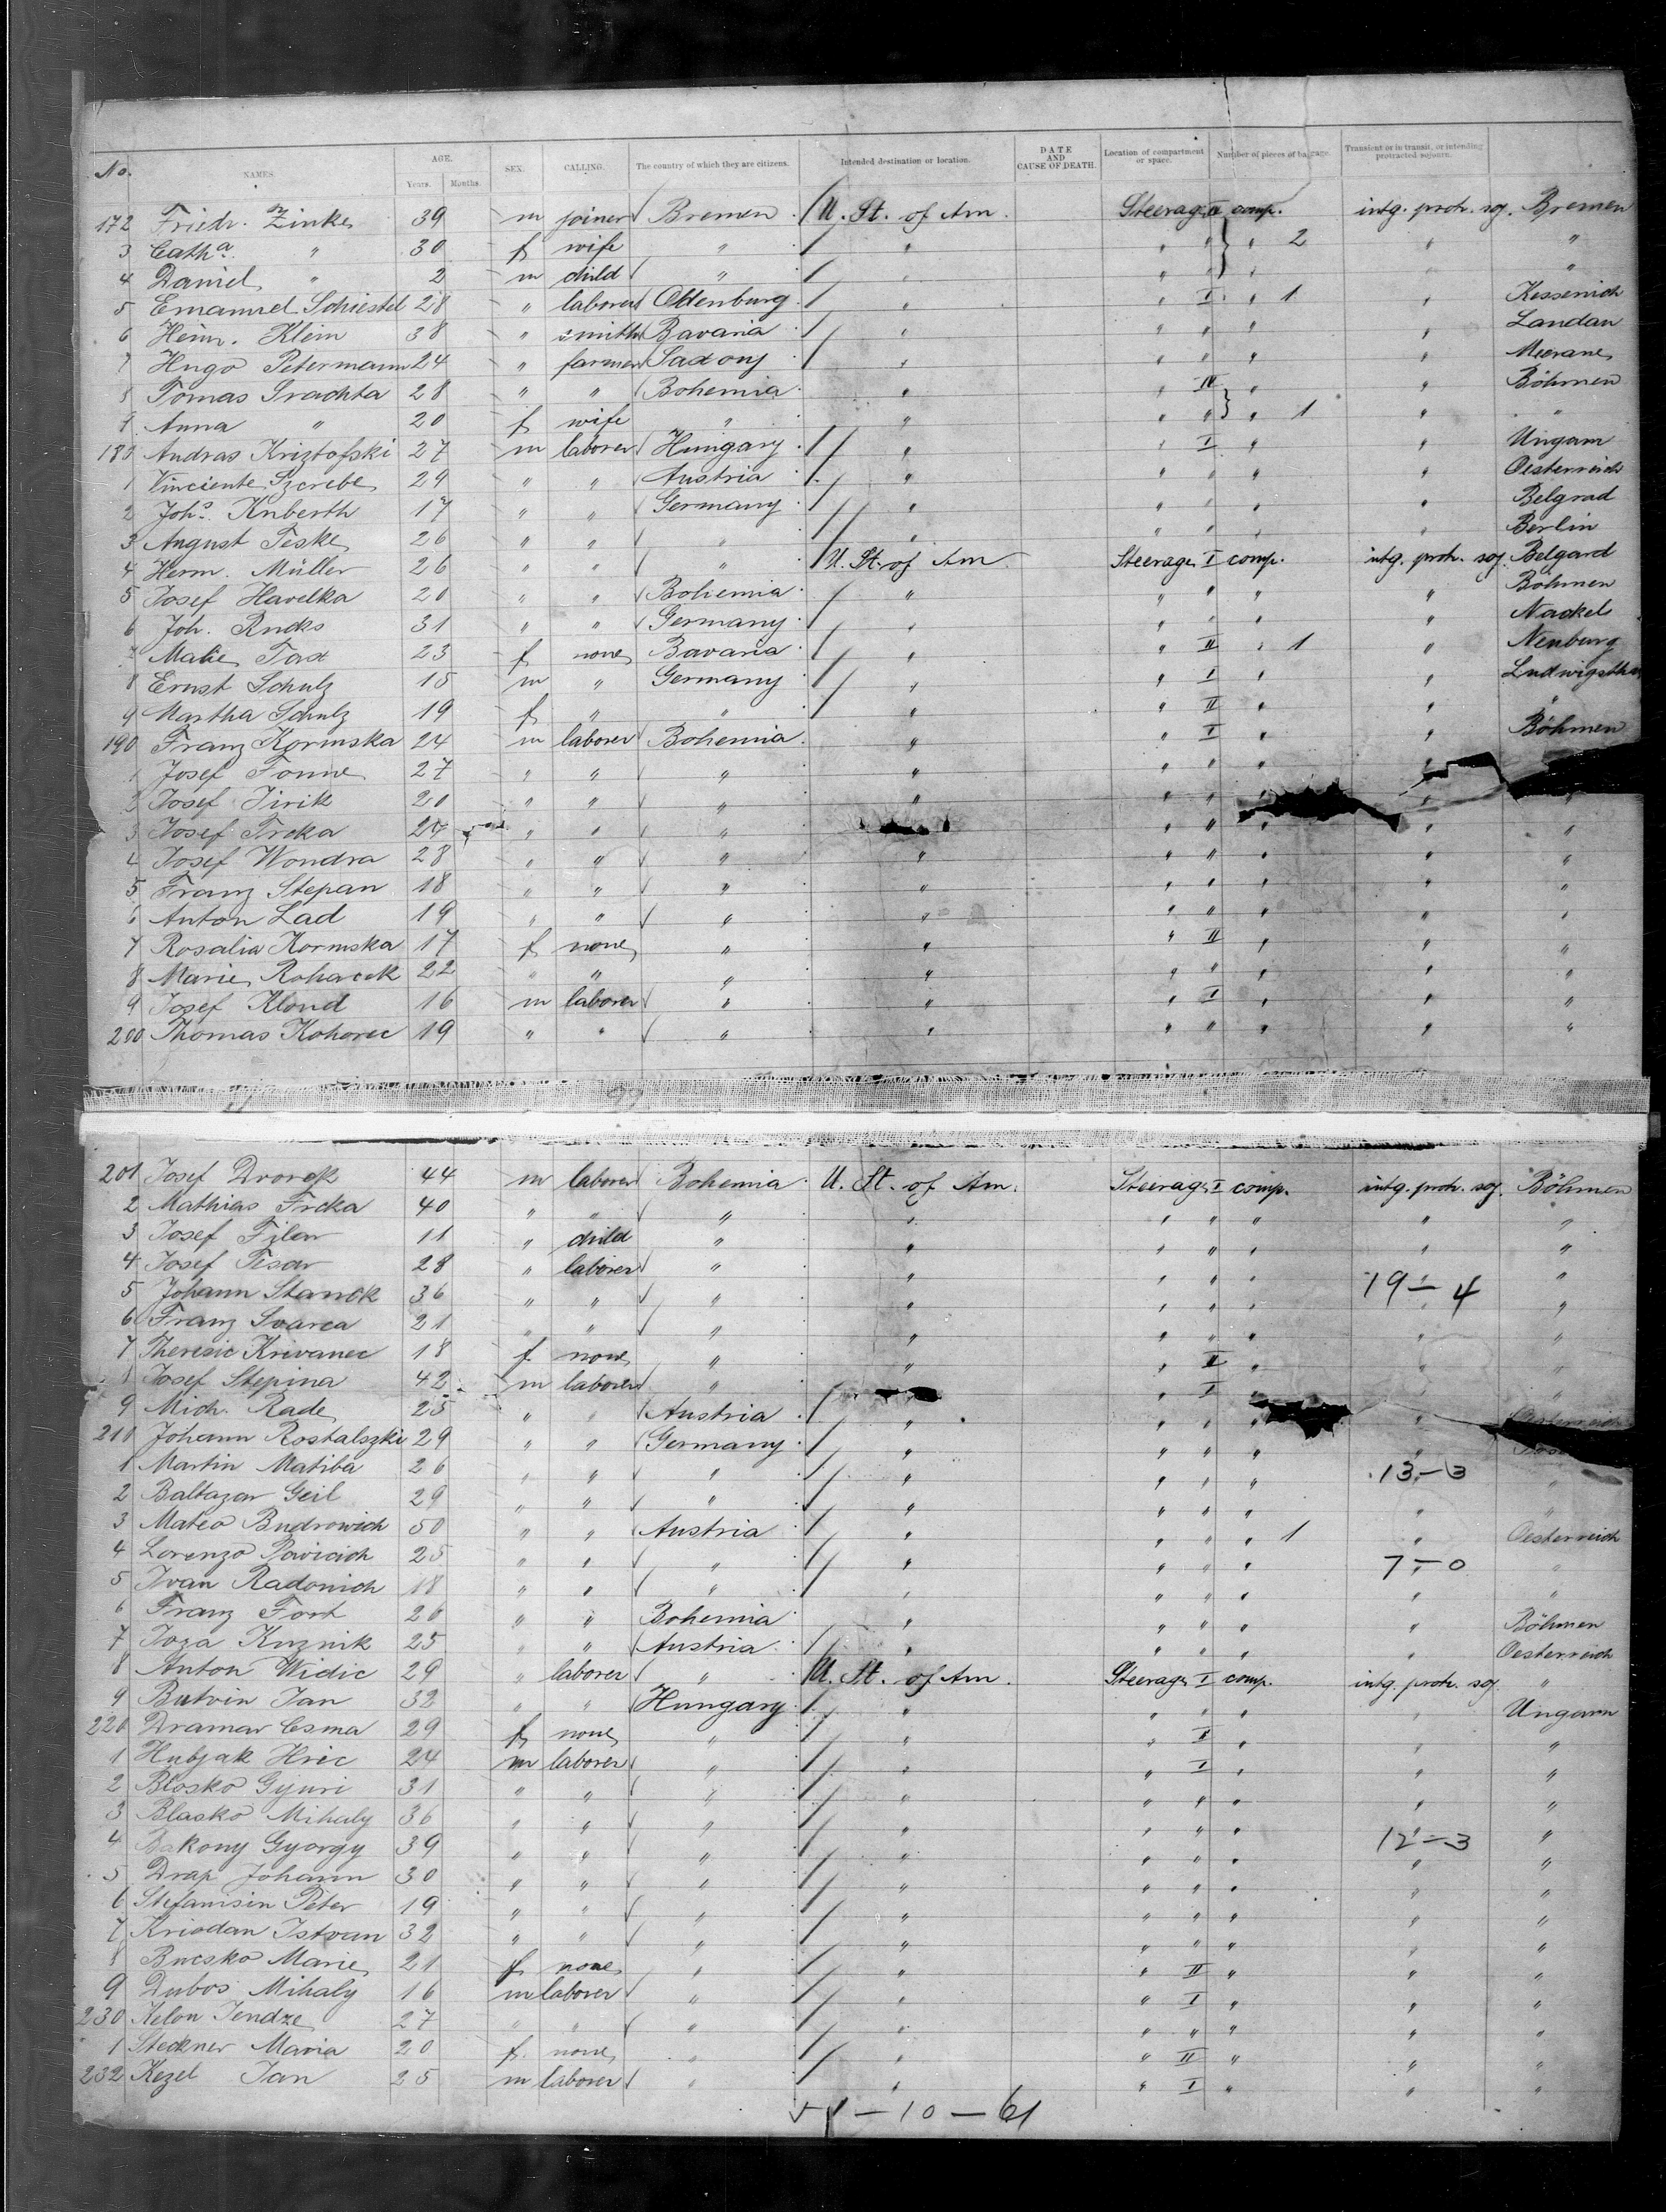 No. NAMES. AGE. Years. Months. SEX. CALLING. The country of which they are citizens. Intended destination or location. DATE AND CAUSE OF DEATH. Location of compartment or space. Number of pieces of baggage. Transient or in transit, or intending protracted sojourn.
172 Friedr. Zinke 39 m joiner Bremen U. St. of Am. Steerage II comp. intg. protr. soj. Bremen
3 Catha. " 30 f wife " " " " " 2 " "
4 Daniel " 2 m child " " " " " " "
5 Emanuel Schiestel 28 " laborer Oldenburg " " I " 1 " Kessenich
6 Heinr. Klein 38 " smith Bavaria " " " " " Landau
7 Hugo Petermann 24 " farmer Saxony " " " " " Meerane
8 Tomas Srachta 28 " " Bohemia " " IV " " Böhmen
9 Anna " 20 f wife " " " " " 1 " "
180 Andras Kriztofski 27 m laborer Hungary " " I " " Ungarn
1 Vinciente Szcrebe 29 " " Austria " " " " " Oesterreich
2 Johs. Knberth 17 " " Germany " " " " " Belgrad
3 August Teske 26 " " " " " " " " Berlin
4 Herm. Müller 26 " " " U. St. of Am. Steerage I comp. intg. protr. soj. Belgard
5 Josef Havelka 20 " " Bohemia " " " " " Böhmen
6 Joh. Rucks 31 " " Germany " " " " " Nackel
7 Malie Tax 23 f none Bavaria " " II " 1 " Neuburg
8 Ernst Schulz 15 m " Germany " " I " "
9 Martha Schulz 19 f " " " " II " " "
190 Franz Kormska 24 m laborer Bohemia " " I " " Böhmen
1 Josef Tonne 27 " " " " " " " "
2 Josef Jirik 20 " " " " " " "
3 Josef Trcka 24 " " " " " " " "
4 Josef Wondra 28 " " " " " " " " "
5 Franz Stepan 18 " " " " " " " " "
6 Anton Lad 19 " " " " " " " " "
7 Rosalia Kormska 17 f none " " " II " " "
8 Marie Rohacek 22 " " " " " " " " "
9 Josef Kloud 16 m laborer " " " I " " "
200 Thomas Kohorec 19 " " " " " " " " "
201 Josef Dvorek 44 m laborer Bohemia U. St. of Am. Steerage I comp. intg. protr. soj. Böhmen
2 Mathias Trcka 40 " " " " " " " " "
3 Josef Filer 11 " child " " " " " " "
4 Josef Tesar 28 " laborer " " " " " "
19 — 4
5 Johann Stanek 36 " " " " " " " "
6 Franz Svarca 21 " " " " " " " " "
7 Theresie Krivanec 18 f none " " " II " " "
8 Josef Stepina 42 m laborer " " I "
9 Mich. Rade 25 " " Austria " " " " " Oesterreich
210 Johann Rostalszki 29 " " Germany " " " "
1 Martin Matiba 26 " " " " " " " 13 — 3 "
2 Baltazar Geil 29 " " " " " " " " "
3 Mateo Budrowich 50 " " Austria " " " " 1 " Oesterreich
4 Lorenzo Pavicich 25 " " " " " " " 7 — 0 "
5 Ivan Radonich 18 " " " " " " " " "
6 Franz Fort 26 " " Bohemia " " " " " Böhmen
7 Joza Kuznik 25 " " Austria " " " " " Oesterreich
8 Anton Widic 29 " laborer " U. St. of Am. Steerage I comp. intg. protr. soj. "
9 Butvin Jan 32 " " Hungary " " " " " Ungarn
220 Dramar Csma 29 f none " " " " " "
1 Hubjak Hric 24 m laborer " " " I " " "
2 Blosko Gyuri 31 " " " " " " " " "
3 Blasko Mihaly 36 " " " " " " " " "
12 — 3
4 Bakony Gyorgy 39 " " " " " " " " "
5 Drap Johann 30 " " " " " " " " "
6 Stefanisin Peter 19 " " " " " " " " "
7 Kriodan Istvan 32 " " " " " " " " "
8 Bucsko Marie 21 f none " " " II " " "
9 Dubos Mihaly 16 m laborer " " " I " " "
230 Kelon Jendze 27 " " " " " " " " "
1 Steckner Maria 20 f none " " " II " " "
232 Kezel Jan 25 m laborer " " " I " " "
— 10 — 61